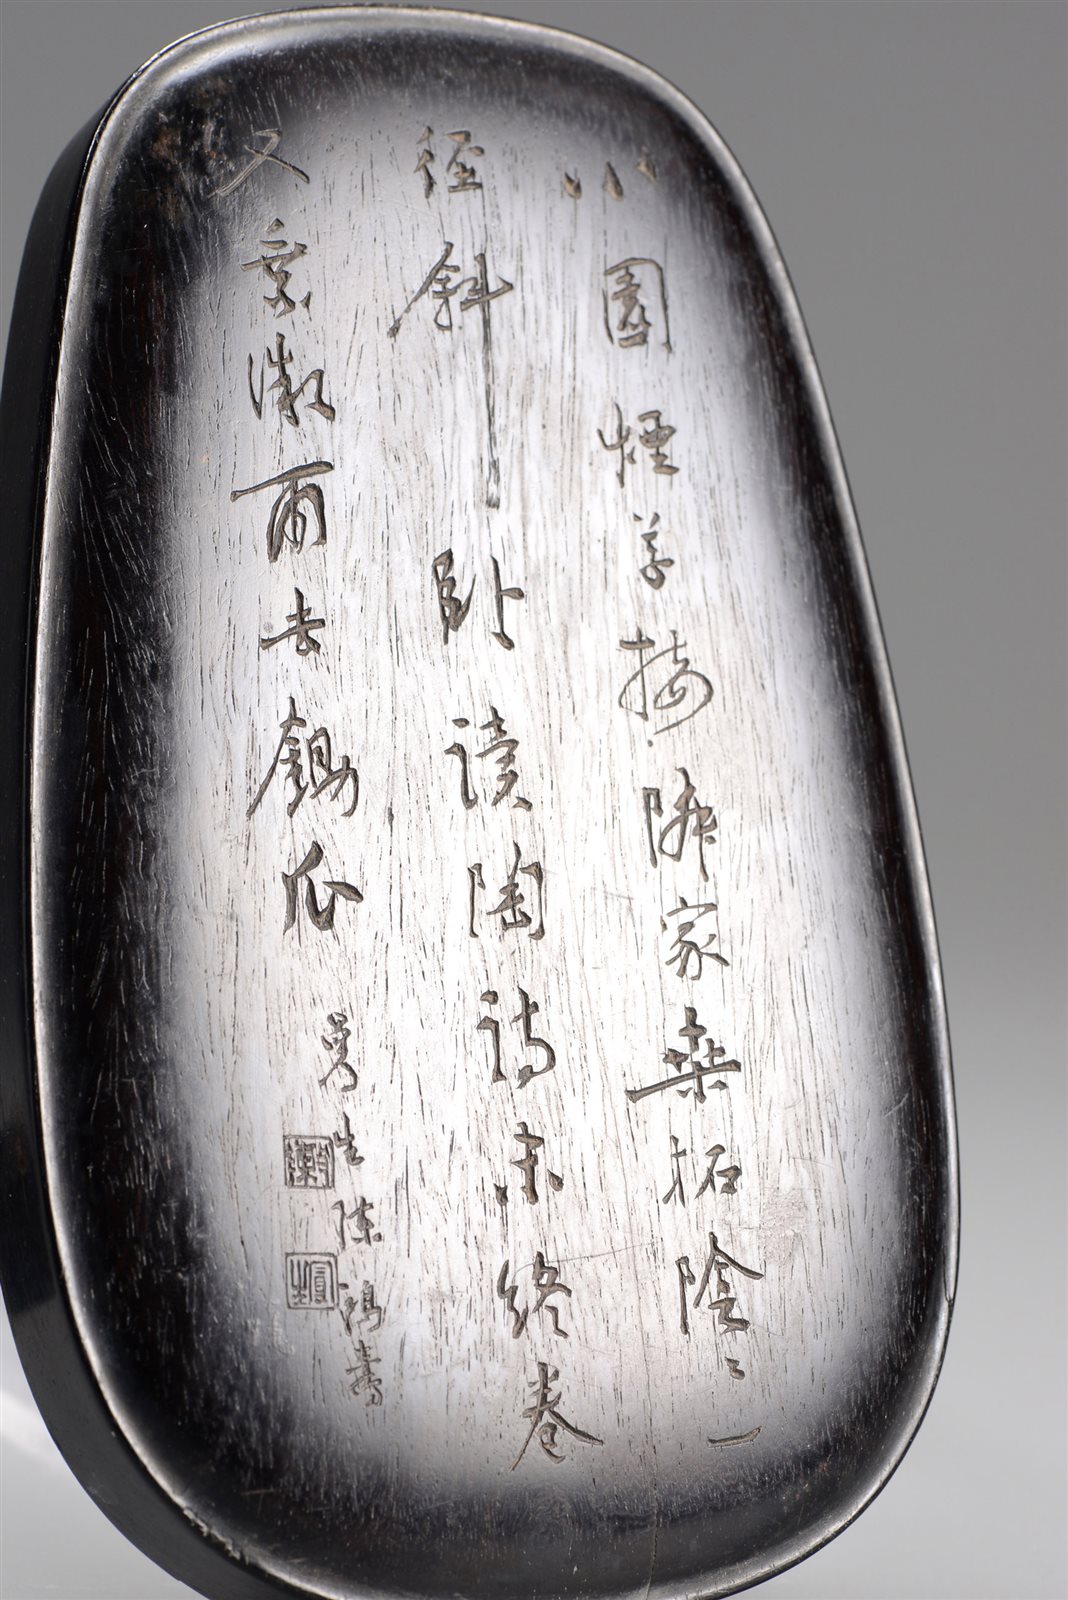 小園煙草接隣家桑柘陰〻一
徑斜臥讀陶詩未終卷
又乘微雨去鋤瓜
曼生陳鴻壽